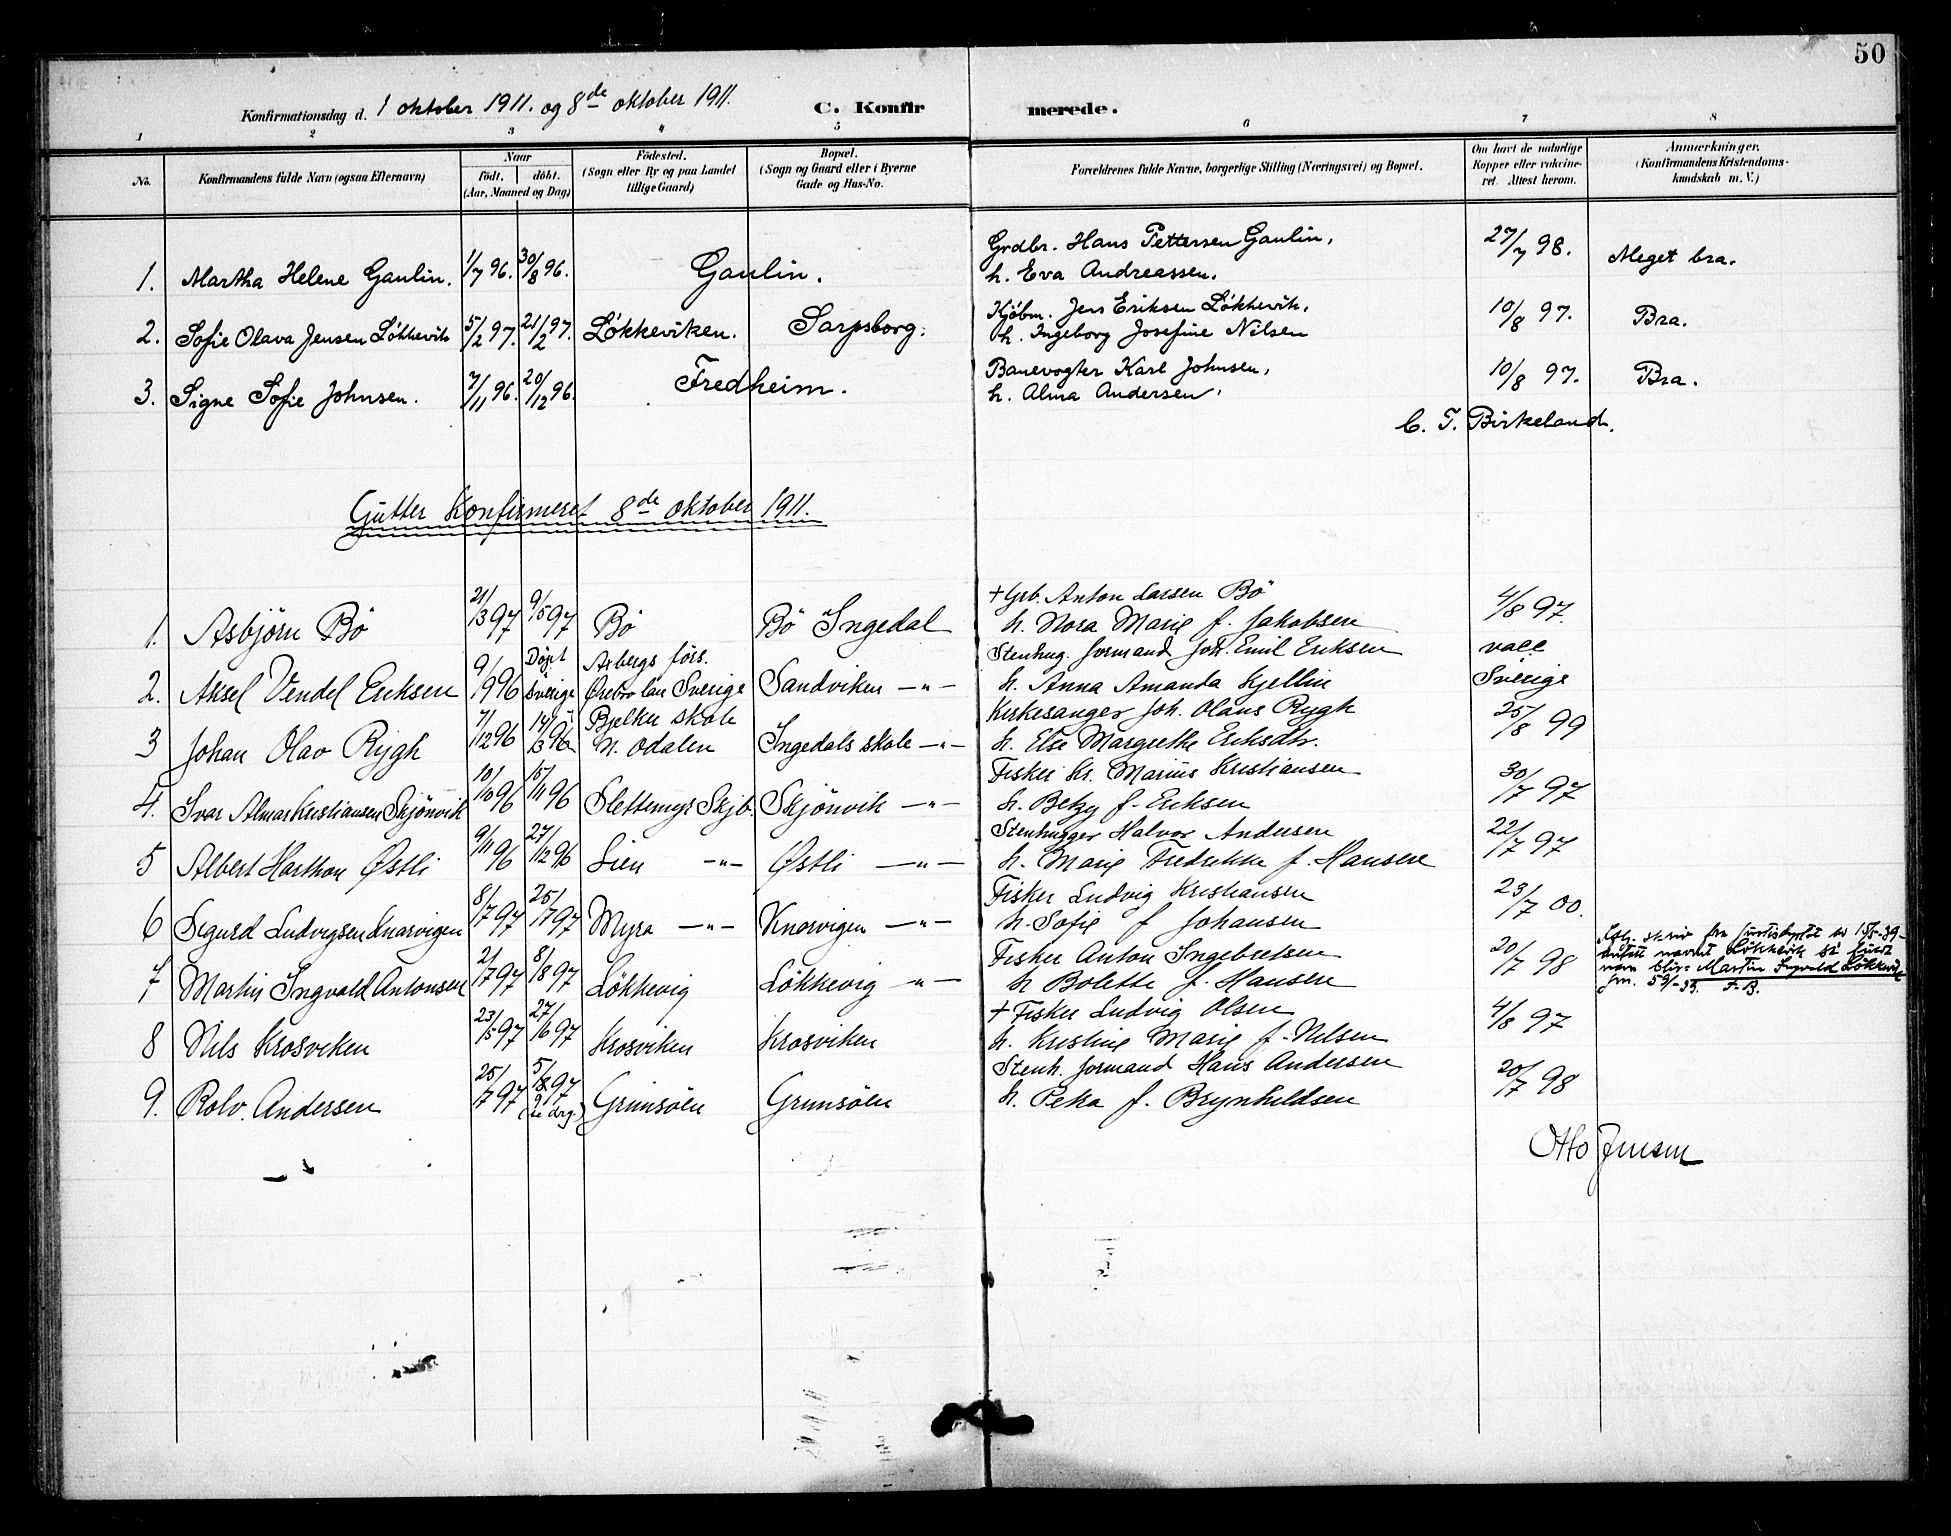 50
Konfirmationsdag d. 1 oktober 1911. og 8de oktober 1911. C. Konfirmerede.
1 2 3 4 5 6 7 8
No. Konfirmandens fulde Navn (ogsaa Efternavn) Naar födt. döbt. (Aar, Maaned og Dag) Födested. (Sogn eller By og paa Landet tillige Gaard) Bopæl. (Sogn og Gaard eller i Byerne Gade og Hus-No. Forældrenes fulde Navne, borgerlige Stilling (Næringsvei) og Bopæl. Om havt de naturlige Kopper eller vakcineret. Attest herom. Anmærkninger. (Konfirmandens Kristendomskundskab m. V.)
1. Martha Helene Gaulin. 1/7 96. 30/8 96. Gaulin. Grdbr. Hans Pettersen Gaulin, 27/7 98. Meget bra.
h. Eva Andreassen.
2. Sofie Olava Jensen Lökkevik 5/2 97. 21/2 97. Lökkeviken. Sarpsborg. Kjöbm. Jens Eriksen Lökkevik, 10/8 97. Bra.
h. Ingeborg Josefine Nilsen
3. Signe Sofie Johnsen. 7/11 96. 20/12 96. Fredheim. Banevogter Karl Johnsen, 10/8 97. Bra.
h. Alma Andersen,
C. T. Birkeland.
Gutter Konfirmeret 8de oktober 1911.
1. Asbjörn Bö 21/3 97 9/5 97 Bö Bö Ingedal + Grb. Anton Larsen Bö 4/8 97.
h. Nora Marie f. Jakobsen
2. Aksel Vendel Eriksen 9/1 96 Döpt Sverige Asbergs förs. Örebro lan Sverige Sandviken —"— Stenhug. formand Joh. Emil Eriksen vacc Sverige
h. Anna Amanda Kjellin
3 Johan Olav Rygh 7/12 96 Bjelke skole N. Odalen Ingedals skole —"— Kirkesanger Joh. Olaus Rygh 25/8 99
h. Else Margrethe Eriksdtr.
4. Ivar Almar Kristiansen Skjönvik 10/10 96 15/11 96 Slettemyr Skjb. Skjönvik —"— Fisker Kr. Marius Kristiansen 30/7 97
h. Betzy f. Eriksen
5 Albert Harthon Østli 9/11 96 27/12 96 Lien —"— Østli —"— Stenhugger Halvor Andersen 22/7 97
h. Marie Fredrikke f. Hansen
6 Sigurd Ludvigsen Knarvigen 8/7 97 25/7 97 Myra —"— Knarvigen —"— Fisker Ludvig Kristiansen 23/7 00.
h. Sofie f Johansen
7 Martin Ingvald Antonsen 2/7 97 8/8 97 Lökkevig Lökkevig —"— Fisker Anton Ingebretsen 20/7 98
h Bolette f. Hansen
navnet Lökkevik
navn blir: Martin Ingvald Lökkevik
8 Nils Krosviken 23/5 97 27/6 97 Krosviken Krosviken + Fisker Ludvig Olsen 4/8 97
h. Kristine Marie f. Nilsen
9. Rolv Andersen 25/7 97 5/9 97 Grimsöen Grimsöen Stenh. formand Hans Andersen 20/7 98
h. Petra f. Brynhildsen
Otto Jensen